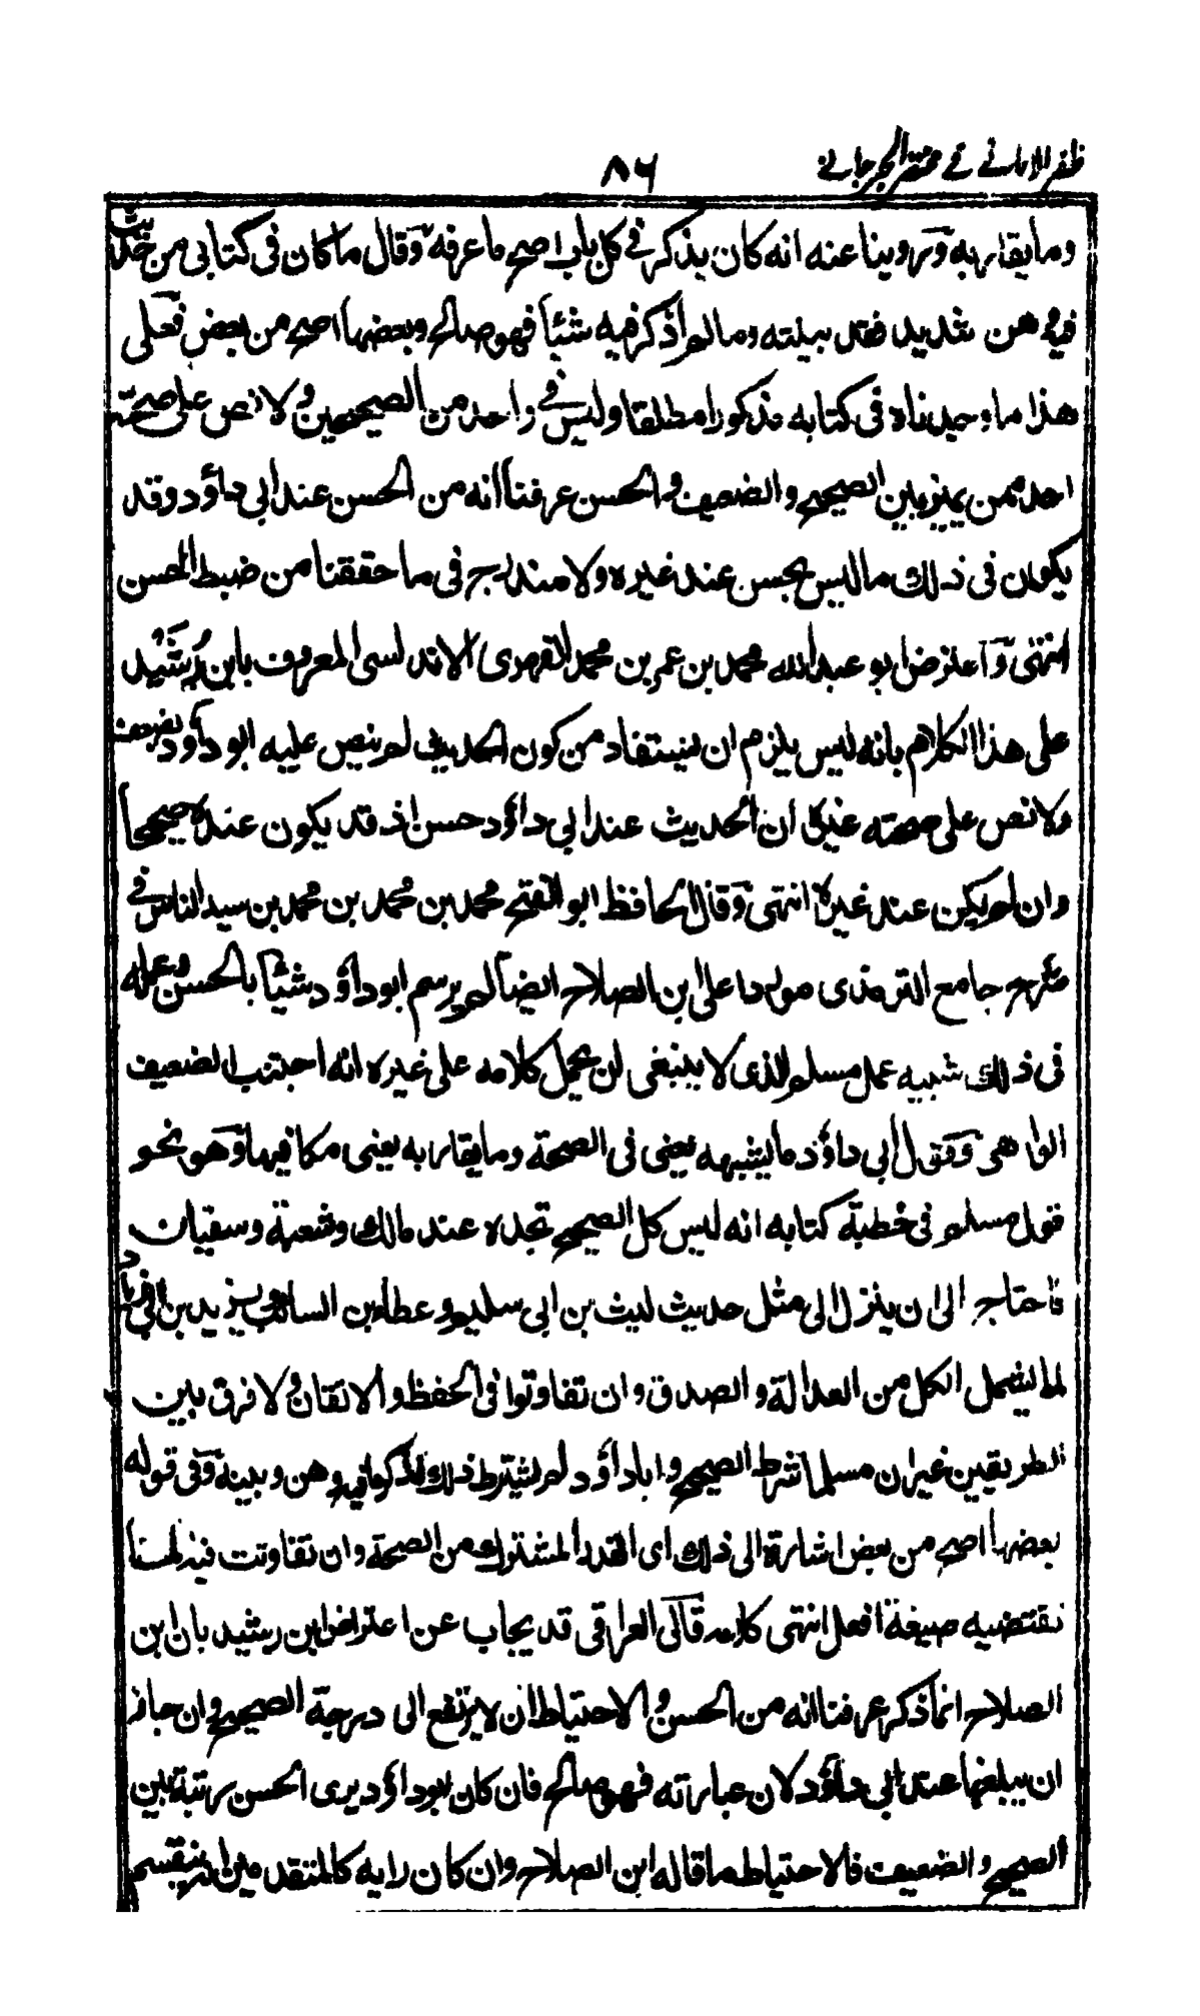 ظفر الامانی فی مختصر الجرجانی
٨٦
وما يقاربه وروينا عنه انه كان يذكر في كل باب اصح ما عرفه وقال ما كان فى كتابى من حديث
فيه وهن شديد فقد بينته وما لم اذكر فيه شيئا فهو صالح وبعضها اصح من بعض فعلى
هذا ما وجدناه فى كتابه مذكورا مطلقا وليس فى واحد من الصحيحين ولا نص على صحته
احد ممن يميز بين الصحيح والضعيف والحسن عرفنا انه من الحسن عند ابى داؤد وقد
يكون فى ذلك ما ليس بحسن عند غيره ولا مندرج فى ما حققنا من ضبط الحسن
انتهى واعترض ابو عبد الله محمد بن عمر بن محمد الفهرى الاندلسى المعروف بابن رُشَيْد
على هذا الكلام بانه ليس يلزم ان يستفاد من كون الحديث لم ينص عليه ابو داؤد بضعف
ولا نص على صحته غيره ان الحديث عند ابى داؤد حسن اذ قد يكون عنده صحيحا
وان لم يكن عند غيره انتهى وقال الحافظ ابو الفتح محمد بن محمد بن محمد بن سيد الناس فى
شرح جامع الترمذى مورداً على ابن الصلاح ايضا لم يرسم ابو داؤد شيئا بالحسن وعمله
فى ذلك شبيه عمل مسلم الذى لا ينبغى ان يحمل كلامه على غيره انه اجتنب الضعيف
الواهى وقول ابى داؤد ما يشبهه يعنى فى الصحة وما يقاربه يعنى مكافيها وهو نحو
قول مسلم فى خطبة كتابه انه ليس كل الصحيح تجده عند مالك وشعبة وسفيان
فاحتاج الى ان ينزل الى مثل حديث ليث بن ابى سليم وعطاء بن السائب ويزيد بن ابى زياد
لما يشمل الكل من العدالة والصدق وان تفاوتوا فى الحفظ والاتقان ولا فرق بين
الطريقين غير ان مسلما شرط الصحيح وابا داؤد لم يشترط ذلك فذكر ما فيه وهن وبينه وفى قوله
بعضها اصح من بعض اشارة الى ذلك اى القدر المشترك من الصحة وان تفاوتت فيه لما
تقتضيه صيغة افعل انتهى كلامه قال العراقى قد يجاب عن اعتراض ابن رشيد بان ابن
الصلاح انما ذكر عرفنا انه من الحسن والاحتياط ان لا يرتفع الى درجة الصحيح وان جاز
ان يبلغها عند ابى داؤد لان عبارته فهو صالح فان كان ابو داؤد يرى الحسن رتبة بين
الصحيح والضعيف فالاحتياط ما قاله ابن الصلاح وان كان رايه كالمتقدمين انه ينقسم